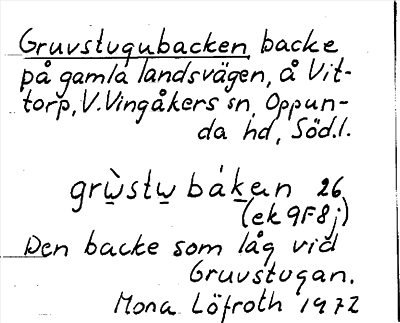 Gruvstugubacken, backe
på gamla landsvägen, å Vit-
torp, V. Vingåkers sn, Oppun-
da hd, Söd.l.
grẁ̲stw̲ bák̲an 26
(ek 9F8j)
Den backe som låg vid
Gruvstugan.
Mona Löfroth 1972